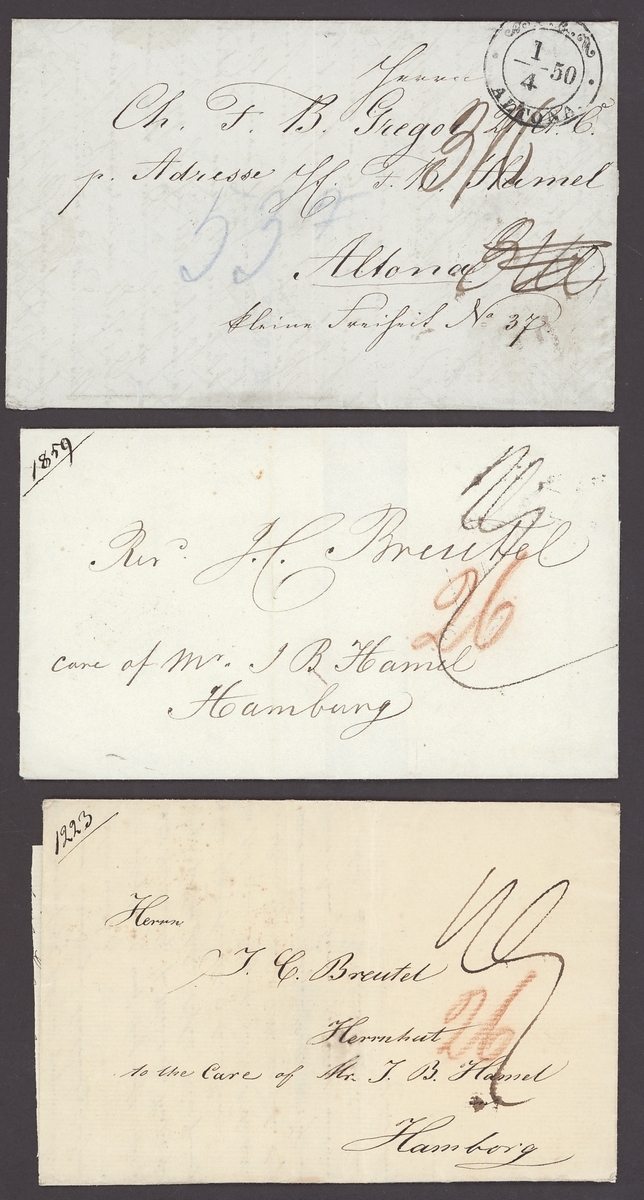 Herrn
1/4 50
ALTONA
Ch. F. B. Gregor
p. Adresse H. F. B. Hamel
537
Altona
kleine Freiheit No 37
1859
Revd. J. C. Breutel
26
care of Mr. J B Hamel
Hamburg
1223
Herrn
J. C. Breutel
Herrnhut
26
to the Care of Mr. J. B. Hamel
Hamborg